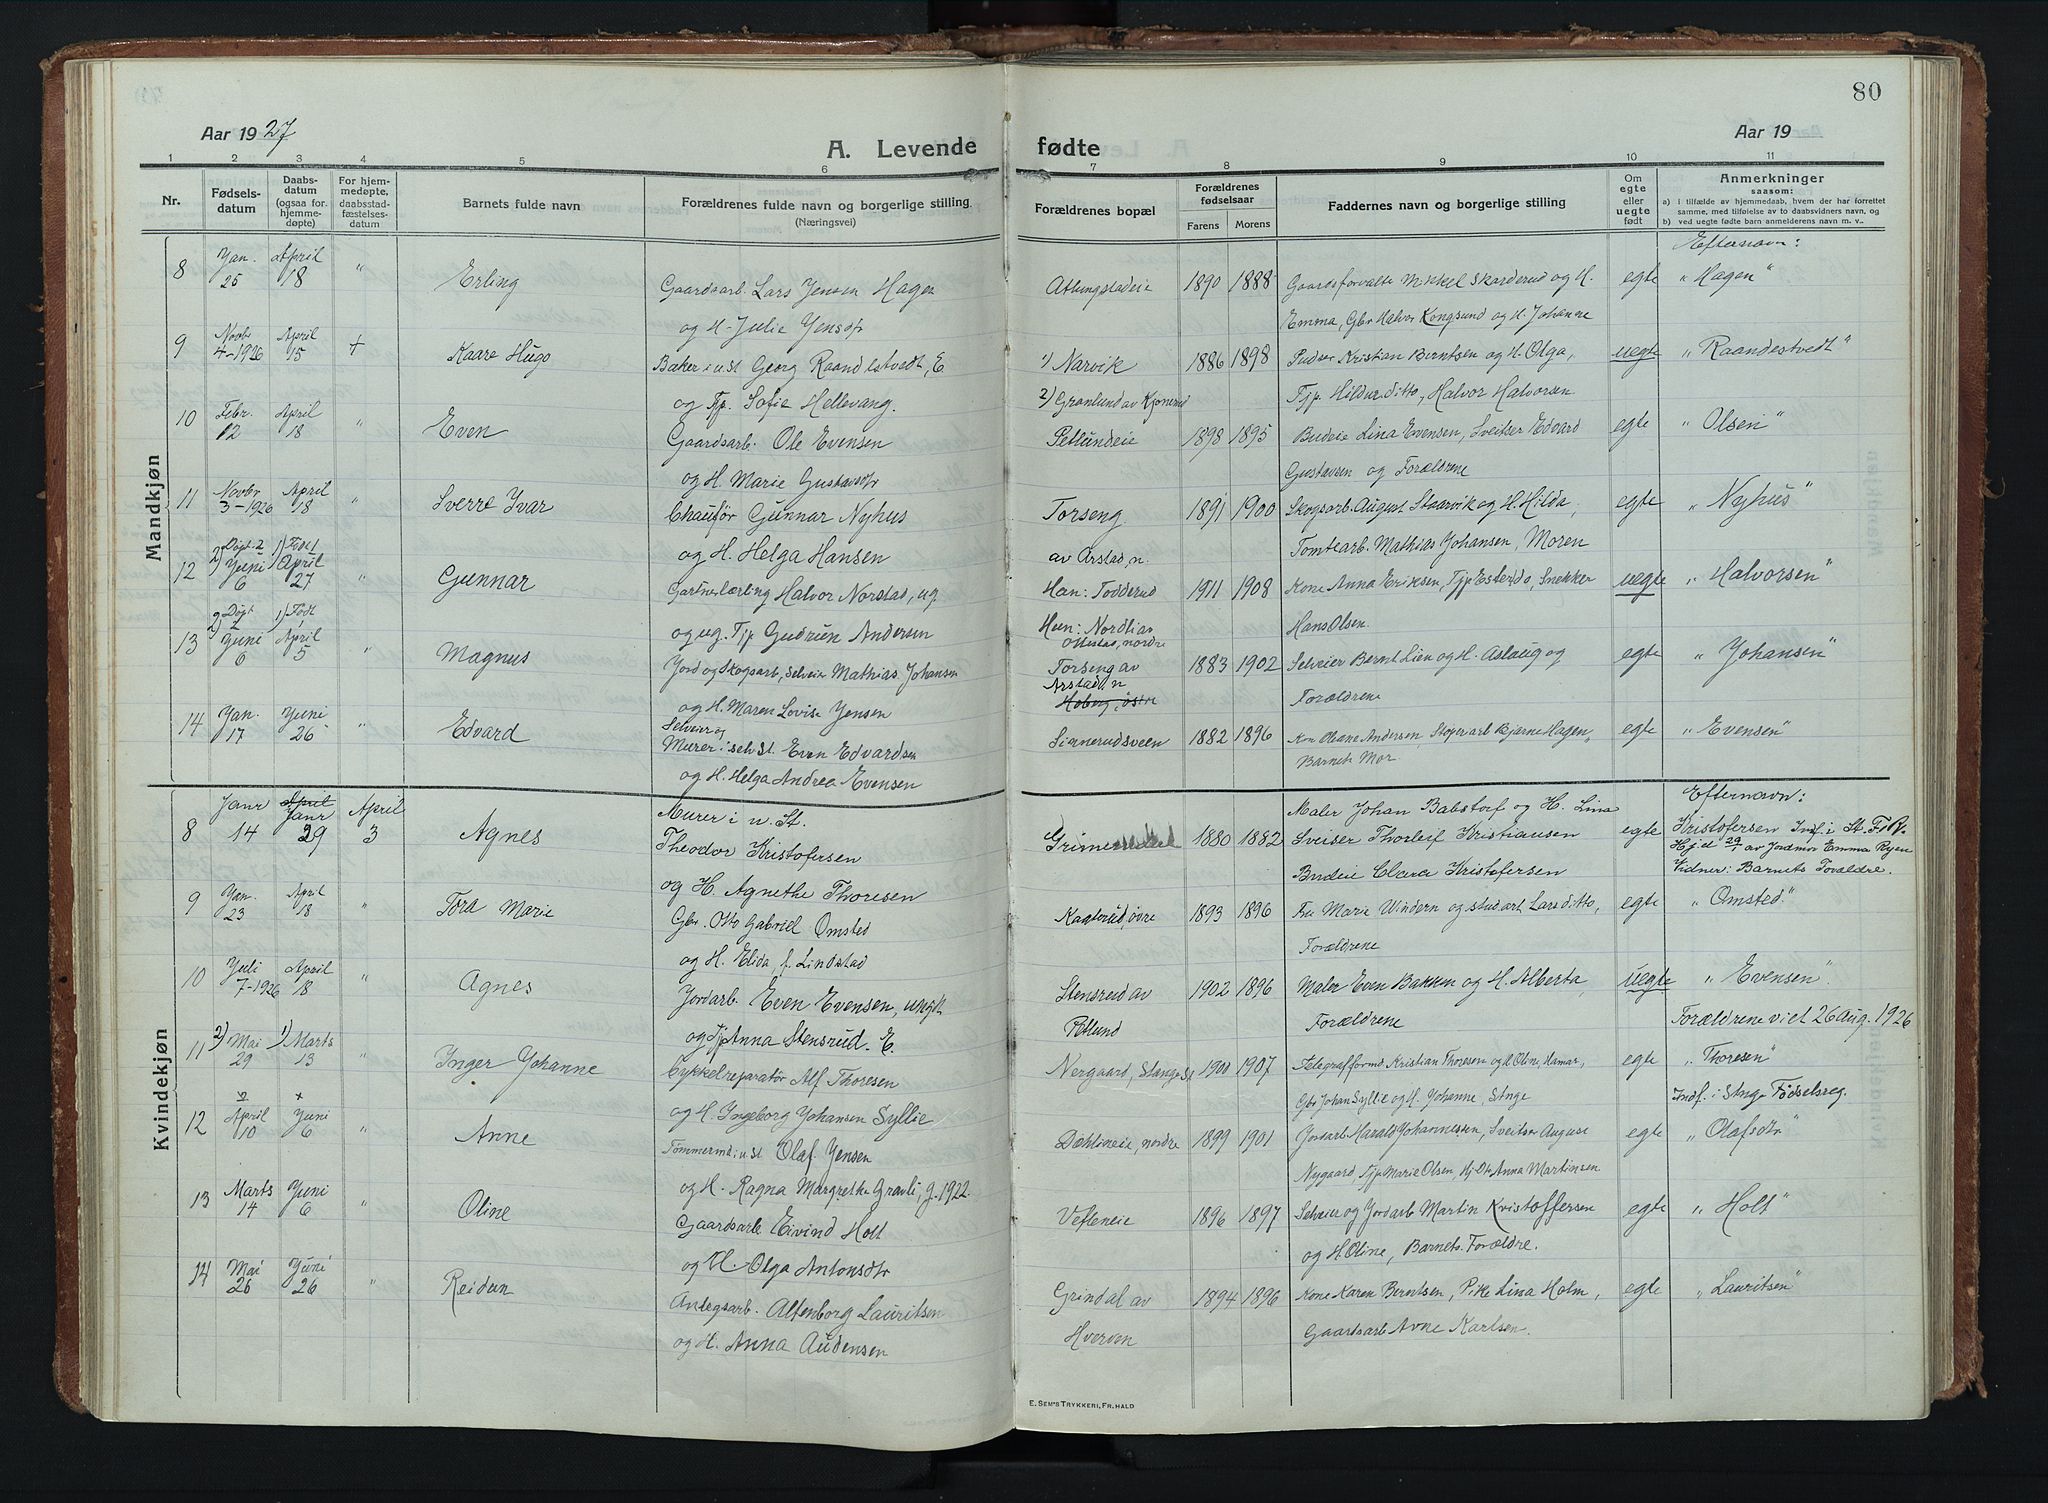 80
Aar 1927
Aar 19
A. Levende fødte
1 2 3 4 5 6 7 8 9 10 11
Nr.
Fødsels-
datum
Daabs-
datum
(ogsaa for
hjemme-
døpte)
For hjem-
medøpte,
daabsstad-
fæstelses-
datum
Barnets fulde navn
Forældrenes fulde navn og borgerlige stilling
(Næringsvei)
Forældrenes bopæl
Forældrenes
fødselsaar
Farens Morens
Faddernes navn og borgerlige stilling
Om
egte
eller
uegte
født
Anmerkninger
saasom:
a) i tilfælde av hjemmedaab, hvem der har forrettet
samme, med tilføielse av to daabsvidners navn, og
b) ved uegte fødte barn anmelderens navn m. v..
Mandkjøn
Efternavn:
8 Jan. 25 April 18 " Erling Gaardsarb. Lars Jensen Hagen Atlungstadeie 1890 1888 Gaardsforvalter Mikkel Skarderud og H. egte "Hagen"
og H. Julie Jensdtr Emma, Gbr Halvor Kongsund og H. Johanne
9 Novbr 4-1926 April 15 + Kaare Hugo Baker i u. St Georg Raandestvedt, E 1) Narvik 1886 1898 Pudser Kristian Berntsen og H. Olga, uegte "Raandestvedt"
og Tjp. Sofie Hellevang. 2) Grønlund av Kjonerud Tjp. Hildur ditto, Halvor Halvorsen
10 Febr. 12 April 18 " Even Gaardsarb. Ole Evensen Petlundeie 1898 1895 Budeie Lina Evensen, Sveitser Edvard egte "Olsen"
og H. Marie Gustavsdtr Gustavsen og Forældrene
11 Novbr 3-1926 April 18 " Sverre Ivar Chauffør Gunnar Nyhus Torseng 1891 1900 Skogsarb. August Staarvik og H. Hilda, egte "Nyhus"
og H. Helga Hansen av Arstad, n. Tomtearb. Mathias Johansen, Moren
12 2) Døpt Juni 6 1) Født April 27 " Gunnar Gartnerlærling Halvor Norstad, ug Han: Todderud 1911 1908 Kone Anna Eriksen, Tjp Ester do, Snekker uegte "Halvorsen"
og ug. Tjp Gudrun Andersen Hun: Nordlia, Hans Olsen.
Ottestad, nordre
13 2) Døpt Juni 6 1) Født April 5 " Magnus Jord og Skogsarb, selveier Mathias Johansen Torseng av 1883 1902 Selveier Bernt Lien og H. Aslaug og egte "Johansen"
og H. Maren Lovise Jensen Arstad, n Forældrene
14 Jan. 17 Juni 26 " Edvard Selveier og
Murer i selvst. Even Edvardsen 1882 1896 Kone Oleane Andersen, Støperarb Bjarne Hagen, egte "Evensen"
og H. Helga Andrea Evensen Barnets Mor
Kvindekjøn
Efternavn:
8 Janr 14 April Janr 29 April 3 Agnes Murer i u. St. 1880 1882 Maler Johan Babstorf og H. Lina egte Kristofersen Indf. i St. F. R.
Theodor Kristofersen Sveiser Thorleif Kristiansen Hjd 29/1 av Jordmor Emma Ryen
og H. Agnethe Thoresen Budeie Clara Kristofersen Vidner: Barnets Forældre.
9 Jan. 23 April 18 " Tora Marie Gbr. Otto Gabriel Omsted Kaaterud, øvre 1893 1896 Fru Marie Windern og stud art Lars ditto, egte "Omsted"
og H. Elida, f. Lindstad Forældrene
10 Juli 7-1926 April 18 " Agnes Jordarb. Even Evensen, ungk Stensrud av 1902 1896 Maler Even Bakken og H. Alberta, uegte "Evensen"
og Tjp Anna Stensrud. E. Petlund Forældrene Forældrene viet 26 Aug. 1926
11 2) Mai 29 1) Marts 13 " Inger Johanne Cykkelreparatør Alf Thoresen Nergaard, Stange St 1900 1907 Telegrafformd Kristian Thoresen og H Oline, Hamar, egte "Thoresen"
og H. Ingeborg Johansen Syllie Gbr Johan Syllie og H. Johanne, Stange Indf. i Stange Fødselsreg.
12 April 10 Juni 6 " Anne Tømmermd i u St Olaf Jensen Dahlineie, nordre 1899 1901 Jordarb Harald Johannessen, Sveitser August egte "Olafsdtr"
og H. Ragna Margrethe Gravli, g. 1922. Nygaard, Tjp Marie Olsen, Hj Dtr Anna Martinsen
13 Marts 14 Juni 6 " Oline Gaardsarb Eivind Holt Vefleneie 1896 1897 Selveier og Jordarb Martin Kristoffersen egte "Holt"
og H. Olga Antonsdtr og H. Oline, Barnets Forældre.
14 Mai 26 Juni 26 " Reidun Anlegsarb. Altenborg Lauritsen Grindal av 1894 1896 Kone Karen Berntsen, Pike Lina Holm, egte "Lauritsen"
og H. Anna Audensen Hverven Gaardsarb Arne Karlsen.
E. SEM'S TRYKKERI, FR.HALD